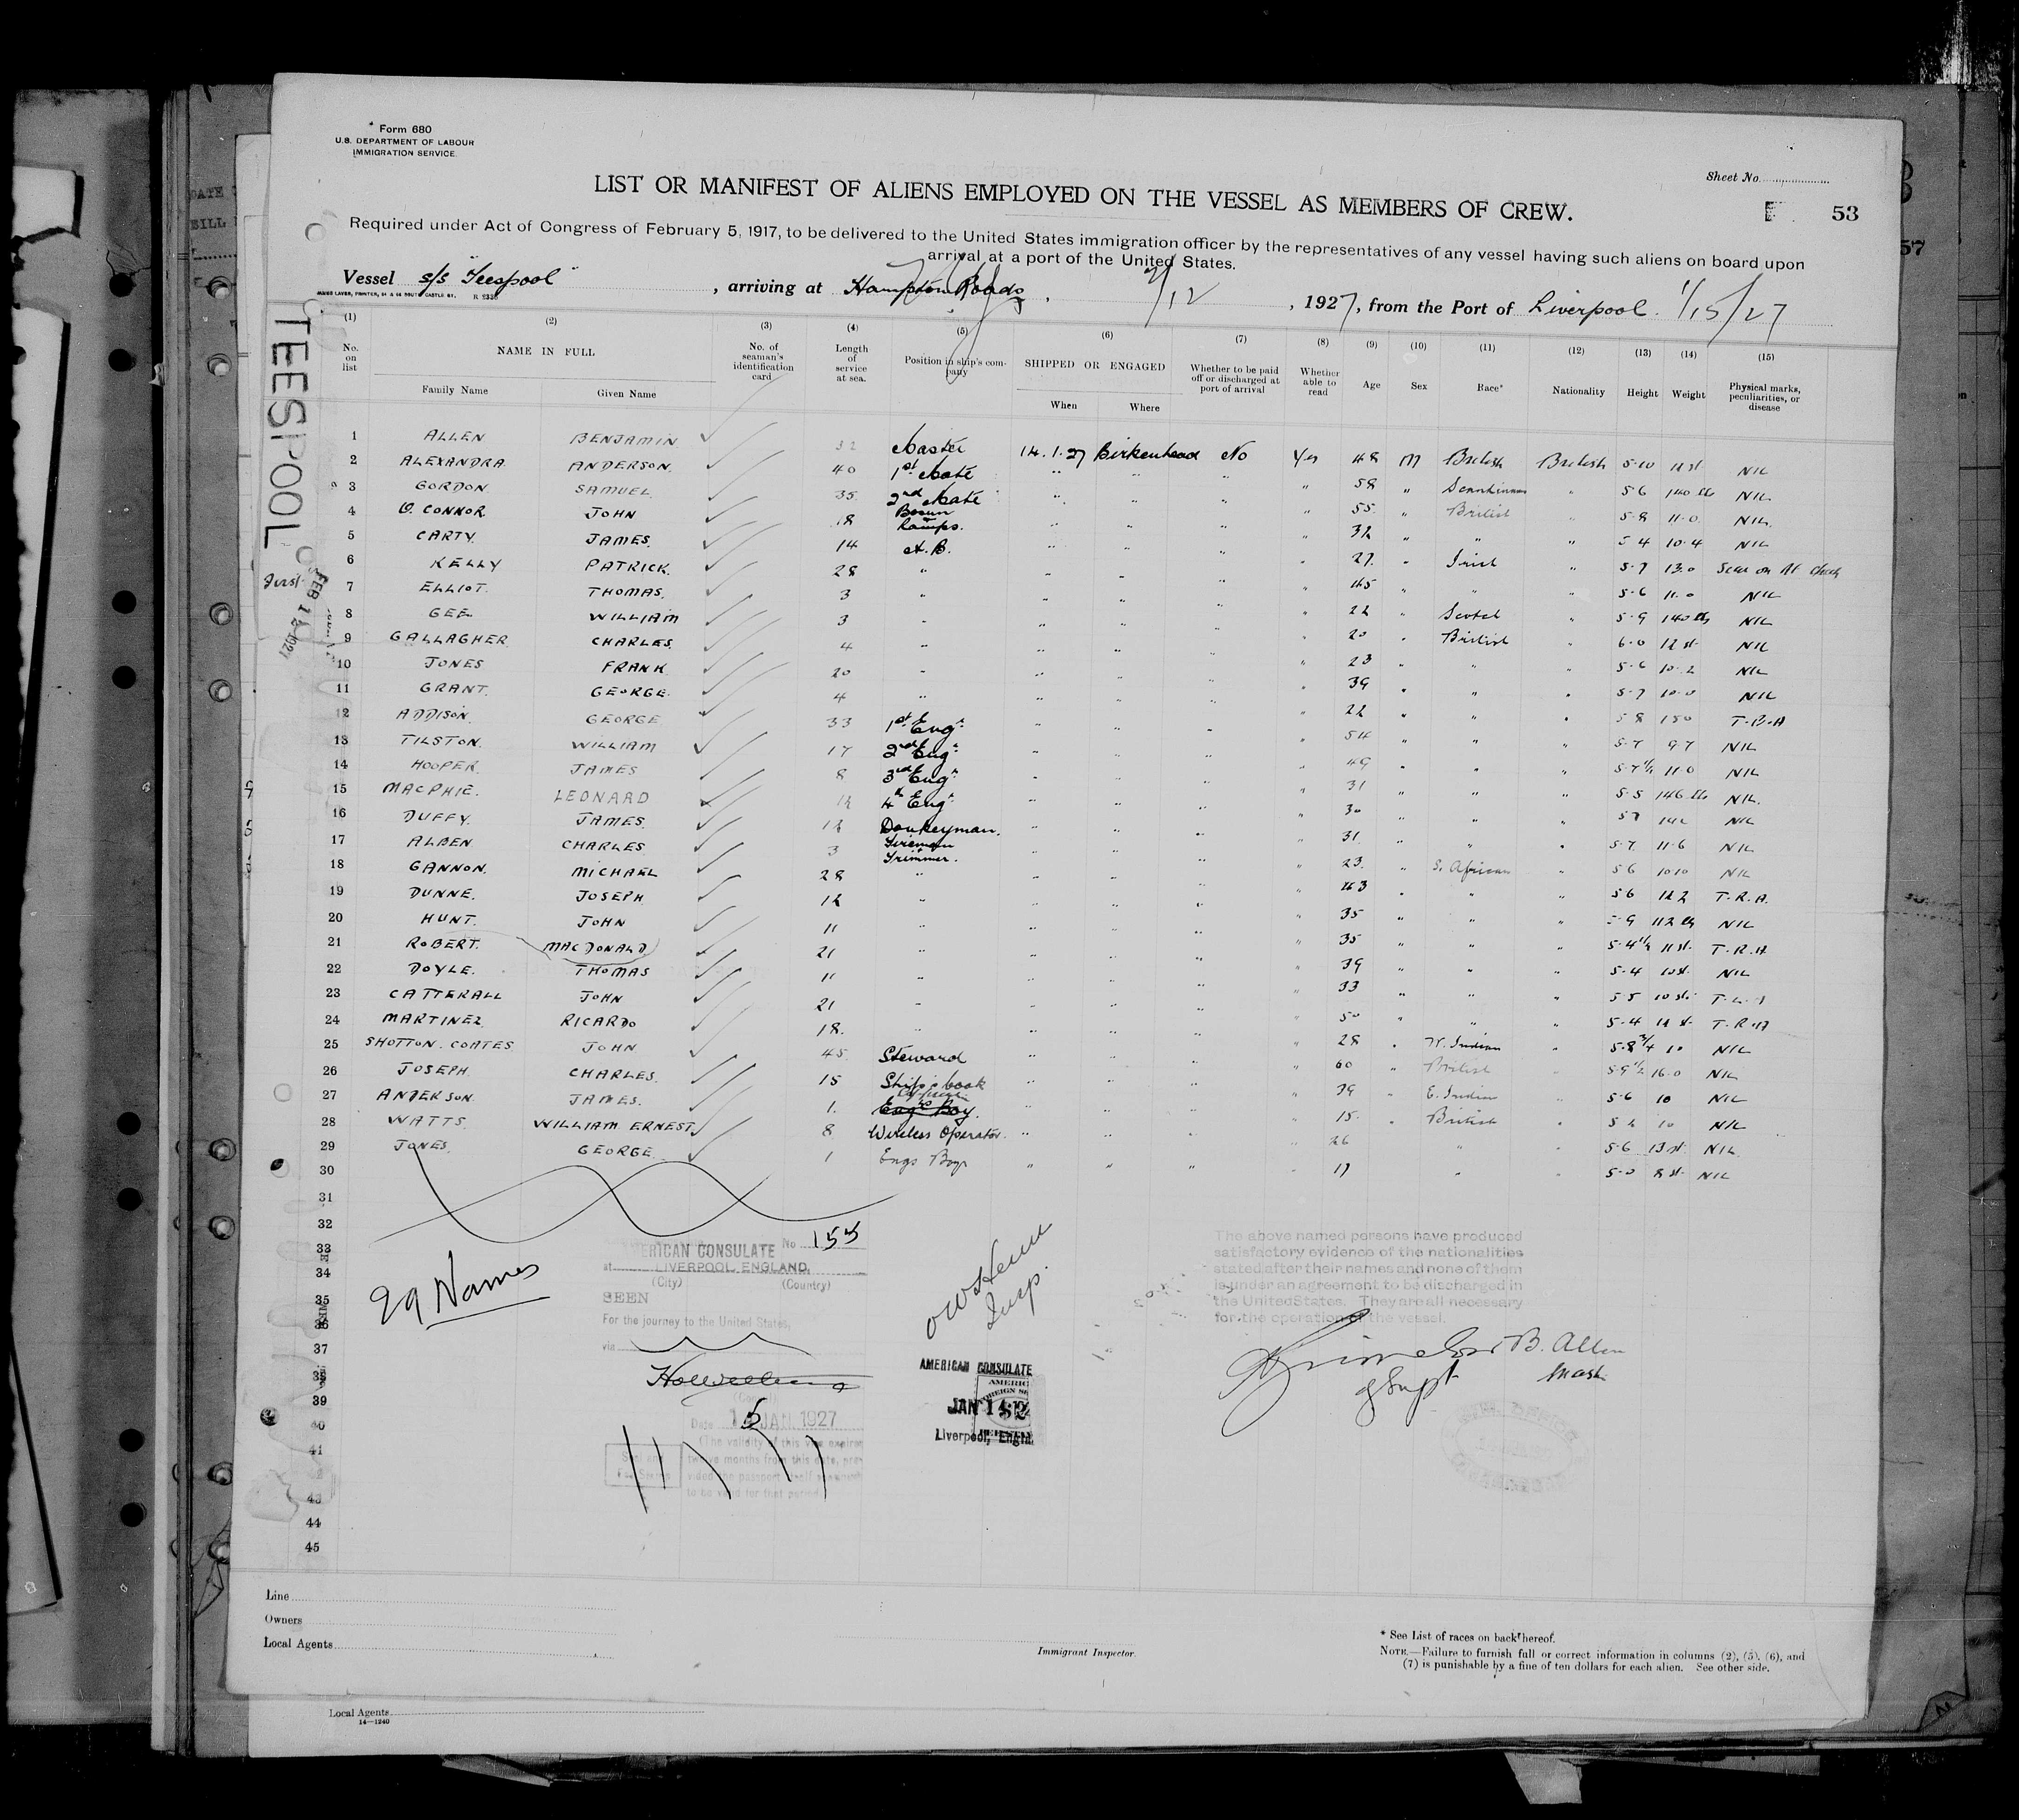 * Form 680
U.S. DEPARTMENT OF LABOUR
IMMIGRATION SERVICE.
Sheet No.
LIST OR MANIFEST OF ALIENS EMPLOYED ON THE VESSEL AS MEMBERS OF CREW.
53
Required under Act of Congress of February 5, 1917, to be delivered to the United States immigration officer by the representatives of any vessel having such aliens on board upon
arrival at a port of the United States.
Vessel s/s "Teespool", arriving at Hampton Roads, 2/12, 1927, from the Port of Liverpool. 1/15/27
TEESPOOL
(1) (2) (3) (4) (5) (6) (7) (8) (9) (10) (11) (12) (13) (14) (15)
No. on list NAME IN FULL No. of seaman's identification card Length of service at sea. Position in ship's company SHIPPED OR ENGAGED Whether to be paid off or discharged at port of arrival Whether able to read Age Sex Race* Nationality Height Weight Physical marks, peculiarities, or disease
Family Name Given Name When Where
1 ALLEN BENJAMIN 32 Master 14.1.27 Birkenhead No Yes 48 M British British 5-10 11 st NIL
2 ALEXANDRA ANDERSON. 40 1st Mate " " " " 58 " " 5-6 140 lbs NIL
3 GORDON SAMUEL. 35 2nd Mate " " " " 55 " British 5-8 11-0 NIL.
4 O. CONNOR. JOHN 18 Bosun Lamps. " " " " 32 " " " 5-4 10-4 NIL
5 CARTY. JAMES. 14 A.B. " " " " 27. " Irish " 5-7 13.0 Scar on
6 KELLY PATRICK. 28 " " " " " 45 " " " 5-6 11.0 NIL
7 ELLIOT. THOMAS. 3 " " " " " 22 " Scotch " 5-9 140 lbs NIL
8 GEE. WILLIAM 3 " " " " " 20 " British " 6-0 12 st. NIL
9 GALLAGHER. CHARLES. 4 " " " " " 23 " " " 5-6 10-2 NIL
10 JONES FRANK 20 " " " " " 39 " " " 5-7 10-0 NIL
11 GRANT. GEORGE. 4 " " " " " 22 " " " 5-8 150
12 ADDISON. GEORGE 33 1st Engr. " " " " 54 " " " 5-7 9-7 NIL
13 TILSTON. WILLIAM 17 2nd Engr " " " " 49 " " " 5-7½ 11-0 NIL
14 HOOPER. JAMES 8 3rd Engr " " " " 31 " " " 5-5 146 lbs NIL.
15 MACPHIE. LEONARD 12 4th Engr. " " " " 30 " " " 5-7 NIL
16 DUFFY. JAMES. 12 Donkeyman. " " " " 31. " " " 5-7. 11-6 NIL
17 ALBEN. CHARLES. 3 Fireman Trimmer. " " " " 23. " S. African " 5-6 1010 NIL
18 GANNON. MICHAEL 28 " " " " " 43 " " " 5-6 122 T.R.A.
19 DUNNE. JOSEPH. 12 " " " " " 35 " " " 5-9 112 lbs NIL
20 HUNT. JOHN 11 " " " " " 35 " " " 5-4½ 11 st. T.R.A
21 ROBERT. MACDONALD 21 " " " " " 39 " " " 5-4 10 st. NIL
22 DOYLE. THOMAS 11 " " " " " 33 " " " 5-5 10 st.
23 CATTERALL JOHN 21 " " " " " 50 " " " 5-4 st. T.R.A
24 MARTINEZ. RICARDO 18. " " " " " 28 " W. Indian " 5-8¾ 10 NIL
25 SHOTTON. COATES. JOHN 45 Steward " " " " 60 " British " 5-9½ 16-0 NIL
26 JOSEPH. CHARLES. 15 Ship's Cook " " " " 39 " E. Indian " 5-6 10 NIL
27 ANDERSON. JAMES. 1. Engrs Boy. " " " " 15. " British " 5-2 10 NIL
28 WATTS. WILLIAM ERNEST 8 Wireless Operator. " " " " 26 " " 5-6 13 st. NIL.
29 JONES. GEORGE. 1 Engs Boy " " " " 17 " " 5-0 8 st. NIL
30
31
32
33
34
35
36
37
38
39
40
41
42
43
44
45
FEB 12 1927
29 Names
AMERICAN CONSULATE No 155
at LIVERPOOL, ENGLAND.
(City) (Country)
SEEN
For the journey to the United States,
via
Date 15 JAN 1927
(The validity of this Visa expires
twelve months from this date, pro-
vided the passport itself
to be valid for that period
Insp.
AMERICAN CONSULATE
JAN 14
Liverpool, England.
The above named persons have produced
satisfactory evidence of the nationalities
stated after their names and none of them
is under an agreement to be discharged in
the United States. They are all necessary
for the operation of the vessel.
B. Allen
Mastr
Line
Owners
Local Agents
Immigrant Inspector.
* See List of races on back hereof.
NOTE.—Failure to furnish full or correct information in columns (2), (5), (6), and
(7) is punishable by a fine of ten dollars for each alien. See other side.
Local Agents
14—1240